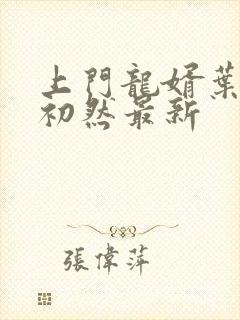 上門龍婿葉
初然最新
張偉萍